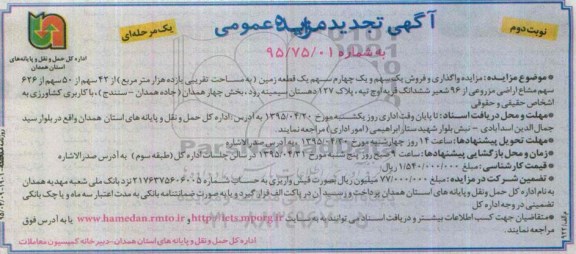 آگهی تجدید مزایده عمومی
نوبت دوم
یک مرحله‌ای
به شماره ۹۵/۷۵/۰۱
اداره کل حمل و نقل و پایانه‌های
استان همدان
• موضوع مزایده: مزایده واگذاری و فروش یک سهم و یک چهارم سهم یک قطعه زمین (به مساحت تقریبی یازده هزار متر مربع) از ۴۲ سهم از ۵۰ سهم از ۶۲۶
سهم مشاع اراضی مزروعی از ۹۶ شعیر ششدانگ قریه اوچ تپه، پلاک ۱۲۷ دهستان سیمینه رود، بخش چهار همدان (جاده همدان - سنندج)، با کاربری کشاورزی به
اشخاص حقیقی و حقوقی
• مهلت و محل دریافت اسناد: تا پایان وقت اداری روز یکشنبه مورخ ۱۳۹۵/۰۴/۲۰ به آدرس: اداره کل حمل و نقل و پایانه های استان همدان واقع در بلوار سید
جمال الدین اسدآبادی - نبش بلوار شهید ستار ابراهیمی (امور اداری) مراجعه نمایند.
• مهلت تحویل پیشنهادها: ساعت ۱۴ روز چهارشنبه مورخ ۱۳۹۵/۰۴/ به آدرس صدرالاشاره
• زمان و محل بازگشایی پیشنهادها: ساعت ۹ صبح روز پنج شنبه مورخ ۱۳۹۵/۰۴/۳۱ سالن جلسات اداره کل (طبقه سوم) به آدرس صدرالاشاره
• قیمت کارشناسی: مبلغ ۱/۵۴۰/۰۰۰/۰۰۰ ریال
• تضمین شرکت در مزایده: مبلغ ۷۷/۰۰۰/۰۰۰ میلیون ریال بصورت فیش واریزی به حساب شماره ۲۱۷۶۳۷۵۶۰۶۰۰۵ نزد بانک ملی شعبه مهدیه همدان
به نام اداره کل حمل و نقل و پایانه های استان همدان پرداخت و رسید آن در پاکت الف قرار گیرد و یا به صورت ضمانتنامه بانکی به مدت اعتبار سه ماه و یا چک بانکی
تضمینی در وجه اداره کل
• متقاضیان جهت کسب اطلاعات بیشتر و دریافت اسناد می توانند به سایت http://iets.mporg.ir و یا www.hamedan.rmto.ir یا به آدرس فوق
مراجعه نمایند.
اداره کل حمل و نقل و پایانه های استان همدان - دبیرخانه کمیسیون معاملات